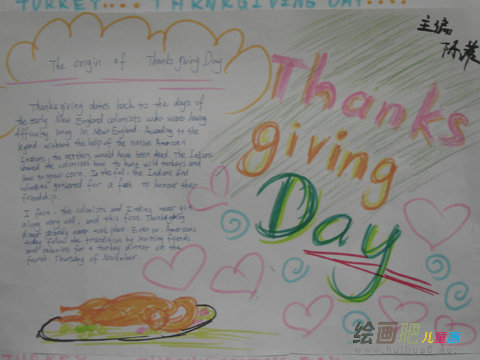 TURKEY.... THANKSGIVING DAY....
主编
The origin of Thanks giving Day
Thanks giving dates back to the days of
the early New England colonists who were having
difficulty living in New England. According to the
legend, without the help of the native American
Indians, the settlers would have been dead. The Indians
showed the colonists how to hunt wild turkeys and
how to grow corn. In the fall, the Indians and
colonists gathered for a feast to honour their
friendship.
I fact, the colonists and Indians never got
along very well, and this first Thanksgiving
probably never took place. Even so, Americans
today follow the tradition by inviting friends
and relatives for a turkey dinner on the
fourth Thursday of November.
Thanks
giving
Day
绘画吧 儿童画
www.huihua8.com